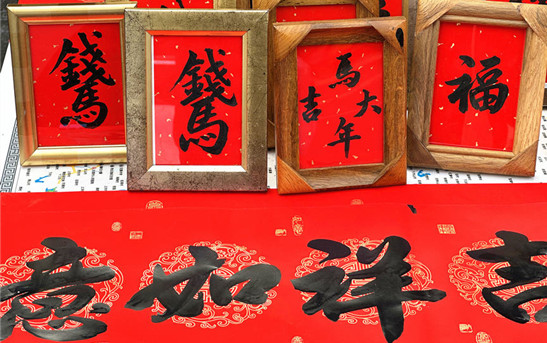 錢馬
錢馬
馬年大吉
福
吉祥如意